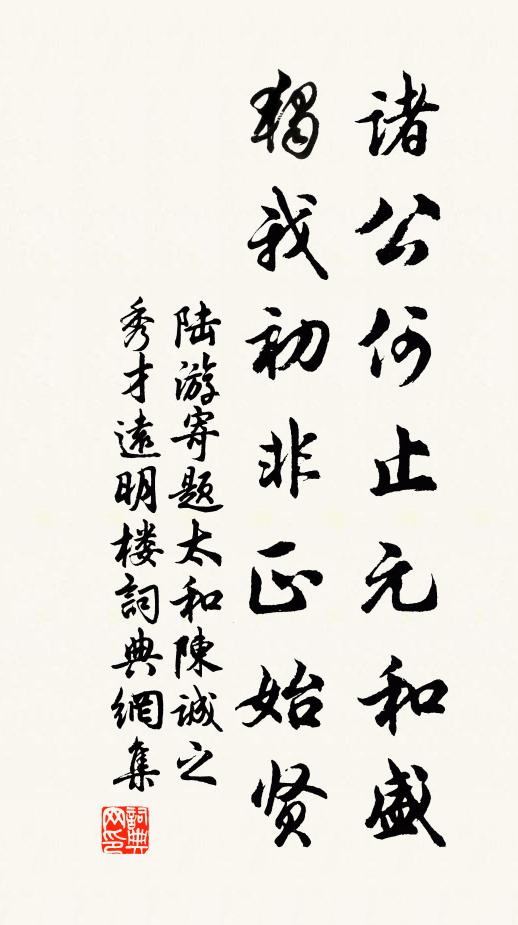 諸公何止元和盛
獨我初非正始贤
陆游寄题太和陳誠之
秀才遠明楼詞典網集
詞典网印